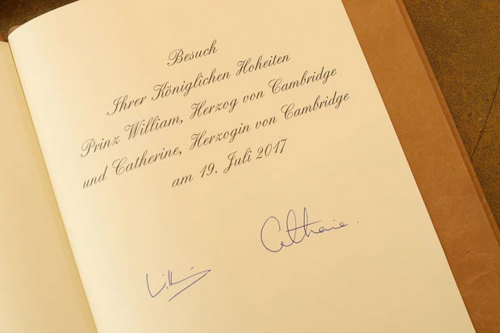 Besuch
Ihrer Königlichen Hoheiten
Prinz William, Herzog von Cambridge
und Catherine, Herzogin von Cambridge
am 19. Juli 2017
Catharine.